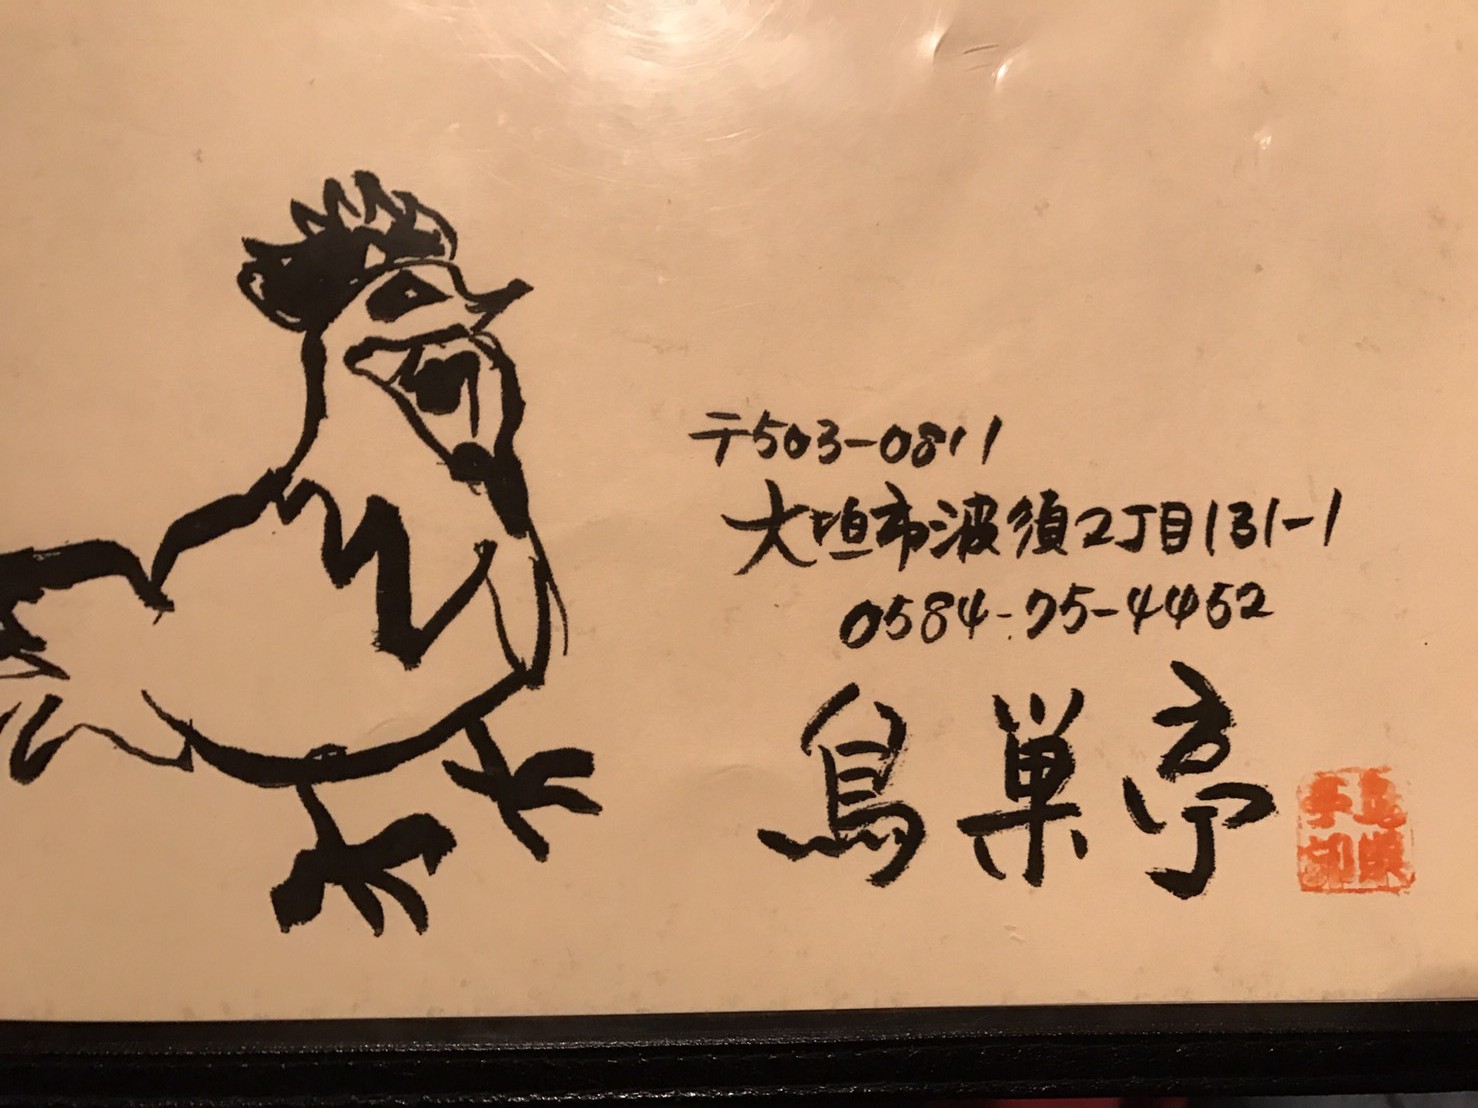 〒503-0811
大垣市波須2丁目131-1
0584-75-4452
鳥巣亭